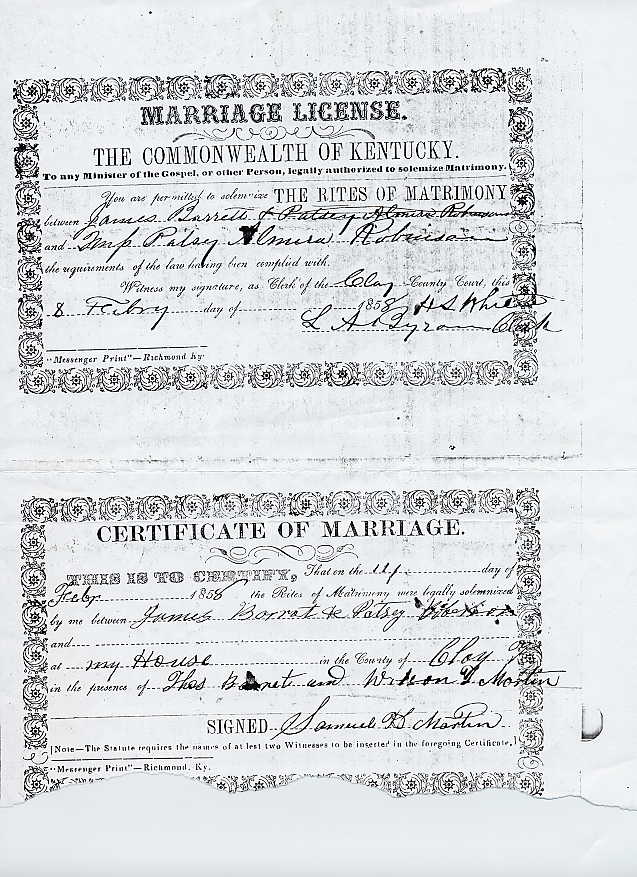 MARRIAGE LICENSE.
THE COMMONWEALTH OF KENTUCKY.
To any Minister of the Gospel, or other Person, legally authorized to solemize Matrimony.
You are permitted to solemnize THE RITES OF MATRIMONY
between James Barrett & Patsey Almira Robinson
and Patsy Almira Robinson
the requirements of the law having been complied with.
Witness my signature, as Clerk of the Clay County Court, this
8 Febry day of 1858 H S White
L A Byron Clerk
"Messenger Print"—Richmond Ky
CERTIFICATE OF MARRIAGE.
THIS IS TO CERTIFY, That on the 11 day of
Febr 1858 the Rites of Matrimony were legally solemnized
by me between James Barrat & Patsey
and
at my House in the County of Clay
in the presence of Thos Barnet and Martin
SIGNED Samuel Martin
[Note—The Statute requires the names of at lest two Witnesses to be inserted in the foregoing Certificate.]
"Messenger Print"—Richmond, Ky.